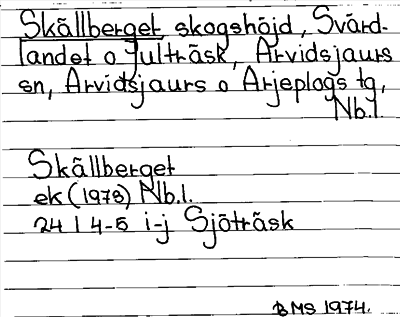 Skällberget skogshöjd, Svärd-
landet o Jutträsk, Arvidsjaurs
sn, Arvidsjaurs o Arjeplogs tg,
Nb.l.
Skällberget
ek (1978) Nb.l.
24 I 4-5 i-j Sjöträsk
BMS 1974.